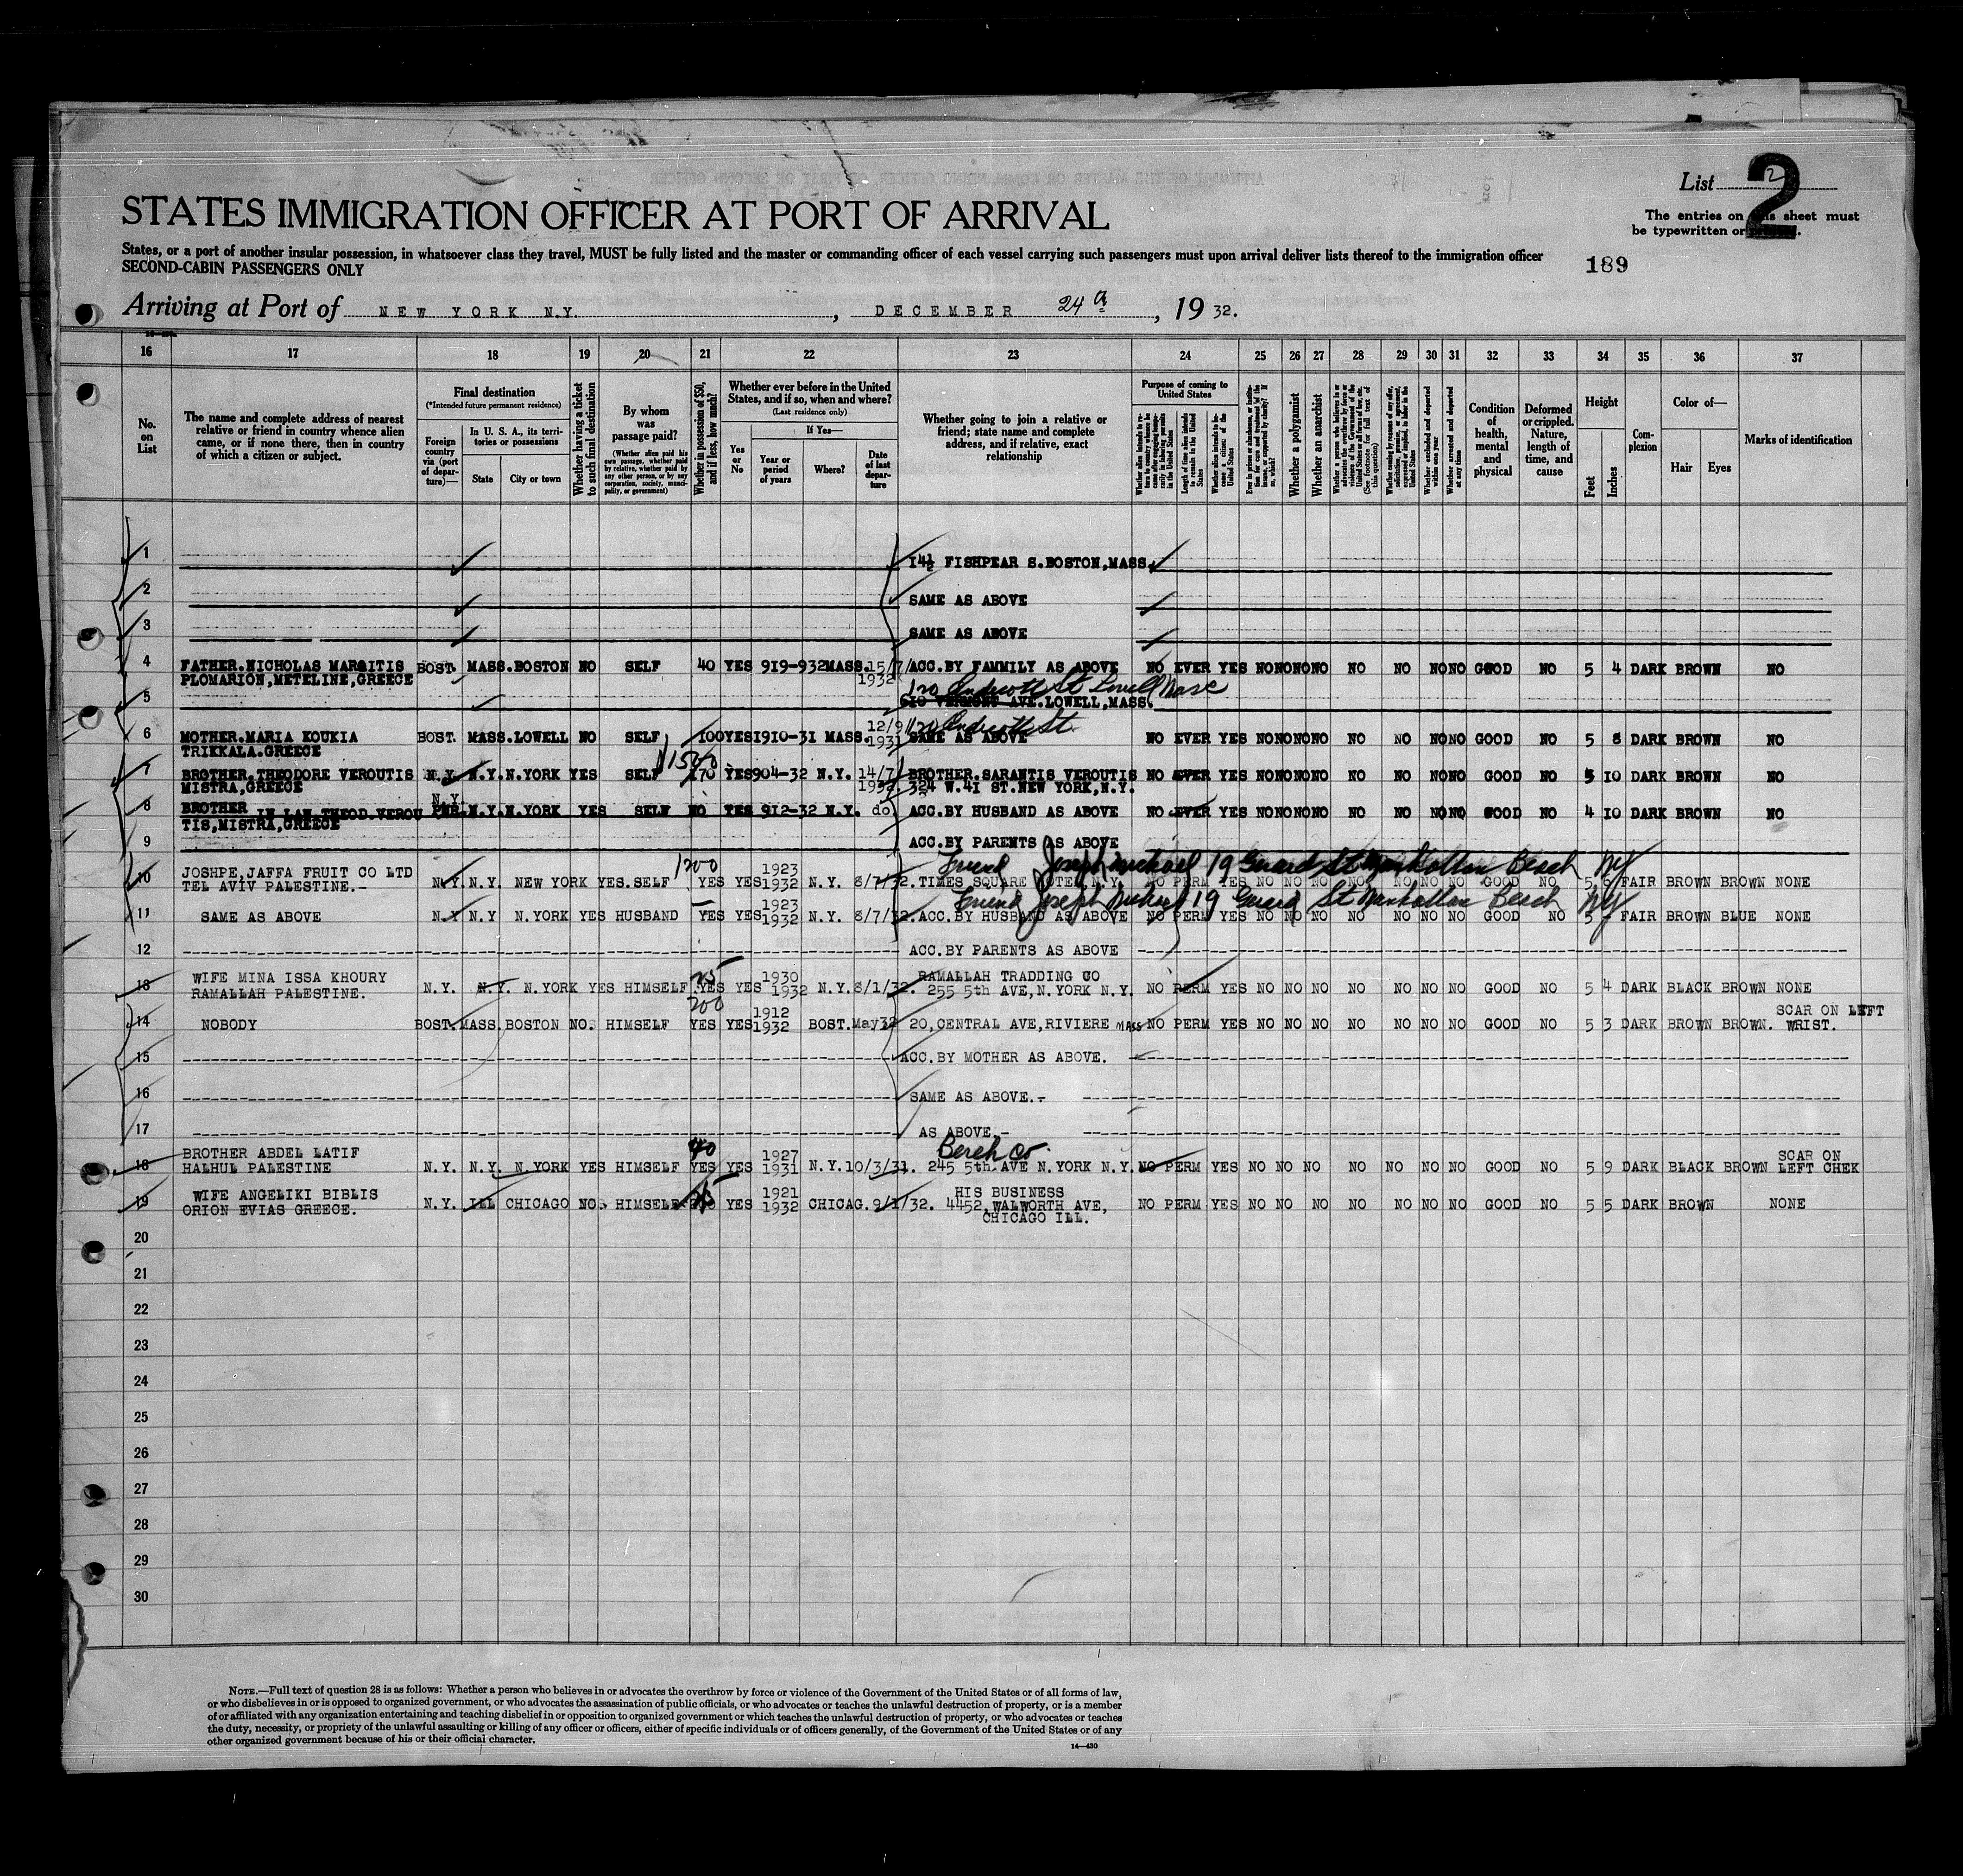 List 2
2
STATES IMMIGRATION OFFICER AT PORT OF ARRIVAL
The entries on this sheet must
be typewritten or printed.
States, or a port of another insular possession, in whatsoever class they travel, MUST be fully listed and the master or commanding officer of each vessel carrying such passengers must upon arrival deliver lists thereof to the immigration officer
SECOND-CABIN PASSENGERS ONLY
189
Arriving at Port of NEW YORK N.Y. , DECEMBER 24th , 19 32.
16 17 18 19 20 21 22 23 24 25 26 27 28 29 30 31 32 33 34 35 36 37
No. on List
The name and complete address of nearest relative or friend in country whence alien came, or if none there, then in country of which a citizen or subject.
Final destination
(*Intended future permanent residence)
Foreign country via (port of departure)—
In U. S. A., its territories or possessions
State
City or town
Whether having a ticket to such final destination
By whom was passage paid?
(Whether alien paid his own passage, whether paid by relative, whether paid by any other person, or by any corporation, society, municipality, or government)
Whether in possession of $50, and if less, how much?
Whether ever before in the United States, and if so, when and where?
(Last residence only)
Yes or No
If Yes—
Year or period of years
Where?
Date of last departure
Whether going to join a relative or friend; state name and complete address, and if relative, exact relationship
Purpose of coming to United States
Length of time alien intends to remain in the United States
Whether alien intends to become a citizen of the United States
Whether a polygamist
Whether an anarchist
(See footnote for full text of this question)
Whether excluded and deported within one year
Whether arrested and deported at any time
Condition of health, mental and physical
Deformed or crippled. Nature, length of time, and cause
Height
Feet
Inches
Complexion
Color of—
Hair
Eyes
Marks of identification
1 14½ FISHPEAR S.BOSTON,MASS.
2 SAME AS ABOVE
3 SAME AS ABOVE
4 FATHER.NICHOLAS MARGITIS BOST. MASS.BOSTON NO SELF 40 YES 919-932 MASS. 15/7/ ACC.BY FAMMILY AS ABOVE NO EVER YES NO NO NO NO NO NO NO NO GOOD NO 5 4 DARK BROWN NO
PLOMARION,METELINE,GREECE 1932
120 Endicott St Lowell Mass
5 VERMONT AVE.LOWELL,MASS.
120 Endicott St.
6 MOTHER.MARIA KOUKIA BOST. MASS.LOWELL NO SELF 100 YES 1910-31 MASS. 12/9/ 1931 SAME AS ABOVE NO EVER YES NO NO NO NO NO NO NO NO GOOD NO 5 8 DARK BROWN NO
TRIKKALA.GREECE
$1500
7 BROTHER.THEODORE VEROUTIS N.Y. N.Y.N.YORK YES SELF 170 YES 904-32 N.Y. 14/7/ BROTHER.SARANTIS VEROUTIS NO EVER YES NO NO NO NO NO NO NO NO GOOD NO 5 10 DARK BROWN NO
MISTRA,GREECE 1932. 324 W.41 ST.NEW YORK,N.Y.
N.Y.
8 BROTHER IN LAW.THEOD.VEROU N.Y.N.YORK YES SELF NO YES 912-32 N.Y. do ACC.BY HUSBAND AS ABOVE NO EVER YES NO NO NO NO NO NO NO NO GOOD NO 4 10 DARK BROWN NO
TIS,MISTRA,GREECE
9 ACC.BY PARENTS AS ABOVE
1200 Friend Joseph Michael 19 Girard St Manhattan Beach NY
10 JOSHPE,JAFFA FRUIT CO LTD N.Y. N.Y. NEW YORK YES.SELF YES YES 1923 1932 N.Y. 8/7/32. TIMES SQUARE HOTEL N.Y. NO PERM YES NO NO NO NO NO NO NO GOOD NO 5 6 FAIR BROWN BROWN NONE
TEL AVIV PALESTINE.-
Friend Joseph Michael 19 Girard St Manhattan Beach NY
11 SAME AS ABOVE N.Y N.Y N.YORK YES HUSBAND YES YES 1923 1932 N.Y. 8/7/32. ACC.BY HUSBAND AS ABOVE NO PERM YES NO NO NO NO NO NO NO GOOD NO 5 FAIR BROWN BLUE NONE
12 ACC.BY PARENTS AS ABOVE
13 WIFE MINA ISSA KHOURY N.Y. N.Y. N.YORK YES HIMSELF 25 YES YES 1930 1932 N.Y. 8/1/32. RAMALLAH TRADDING CO NO PERM YES NO NO NO NO NO NO NO GOOD NO 5 4 DARK BLACK BROWN NONE
RAMALLAH PALESTINE. 255 5th AVE,N.YORK N.Y.
200
14 NOBODY BOST. MASS. BOSTON NO. HIMSELF YES YES 1912 1932 BOST. May 32 20,CENTRAL AVE,RIVIERE MASS NO PERM YES NO NO NO NO NO NO NO GOOD NO 5 3 DARK BROWN BROWN. SCAR ON LEFT WRIST.
15 ACC.BY MOTHER AS ABOVE.
16 SAME AS ABOVE.-
17 AS ABOVE.-
40 Co
18 BROTHER ABDEL LATIF N.Y. N.Y. N.YORK YES HIMSELF YES YES 1927 1931 N.Y. 10/3/31. 245 5th.AVE N.YORK N.Y. NO PERM YES NO NO NO NO NO NO NO GOOD NO 5 9 DARK BLACK BROWN SCAR ON LEFT CHEK
HALHUL PALESTINE
19 WIFE ANGELIKI BIBLIS N.Y. ILL CHICAGO NO. HIMSELF 25 YES 1921 1932 CHICAG. 9/1/32. HIS BUSINESS NO PERM YES NO NO NO NO NO NO NO GOOD NO 5 5 DARK BROWN NONE
ORION EVIAS GREECE. 4452,WALWORTH AVE,
CHICAGO ILL.
20
21
22
23
24
25
26
27
28
29
30
NOTE.—Full text of question 28 is as follows: Whether a person who believes in or advocates the overthrow by force or violence of the Government of the United States or of all forms of law,
or who disbelieves in or is opposed to organized government, or who advocates the assassination of public officials, or who advocates or teaches the unlawful destruction of property, or is a member
of or affiliated with any organization entertaining and teaching disbelief in or opposition to organized government or which teaches the unlawful destruction of property, or who advocates or teaches
the duty, necessity, or propriety of the unlawful assaulting or killing of any officer or officers, either of specific individuals or of officers generally, of the Government of the United States or of any
other organized government because of his or their official character.
14—430